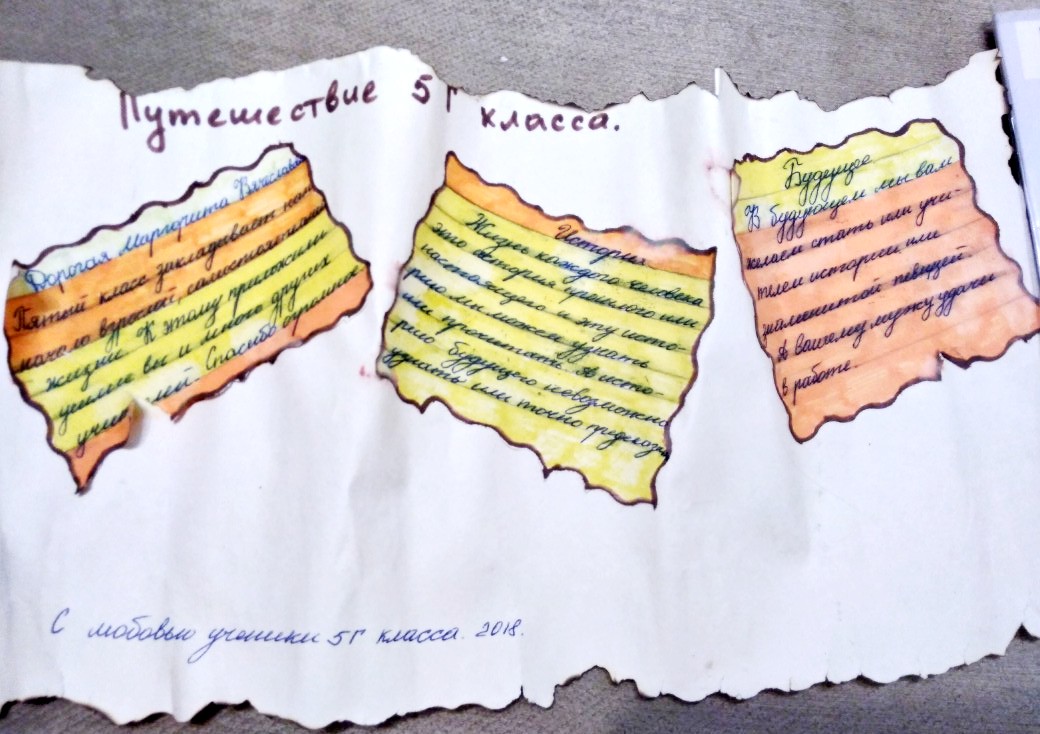 Путешествие 5 Г
класса.
Дорогая Маргарита Вячеславовна
Пятый класс закладывает нам
начало взрослой, самостоятельной
жизни. К этому приложили
усилие вы и много других
учителей. Спасибо огромное.
История
Жизнь каждого человека
это история прошлого или
настоящего и эту исто-
рию мы можем узнать
или прочитать. А исто-
рию будущего невозможно
узнать или точно предсказать
Будущее
В будующем мы вам
желаем стать или учи-
телем истории, или
знаменитой певицей.
А вашему мужу удачи
в работе.
С любовью ученики 5Г класса. 2018.